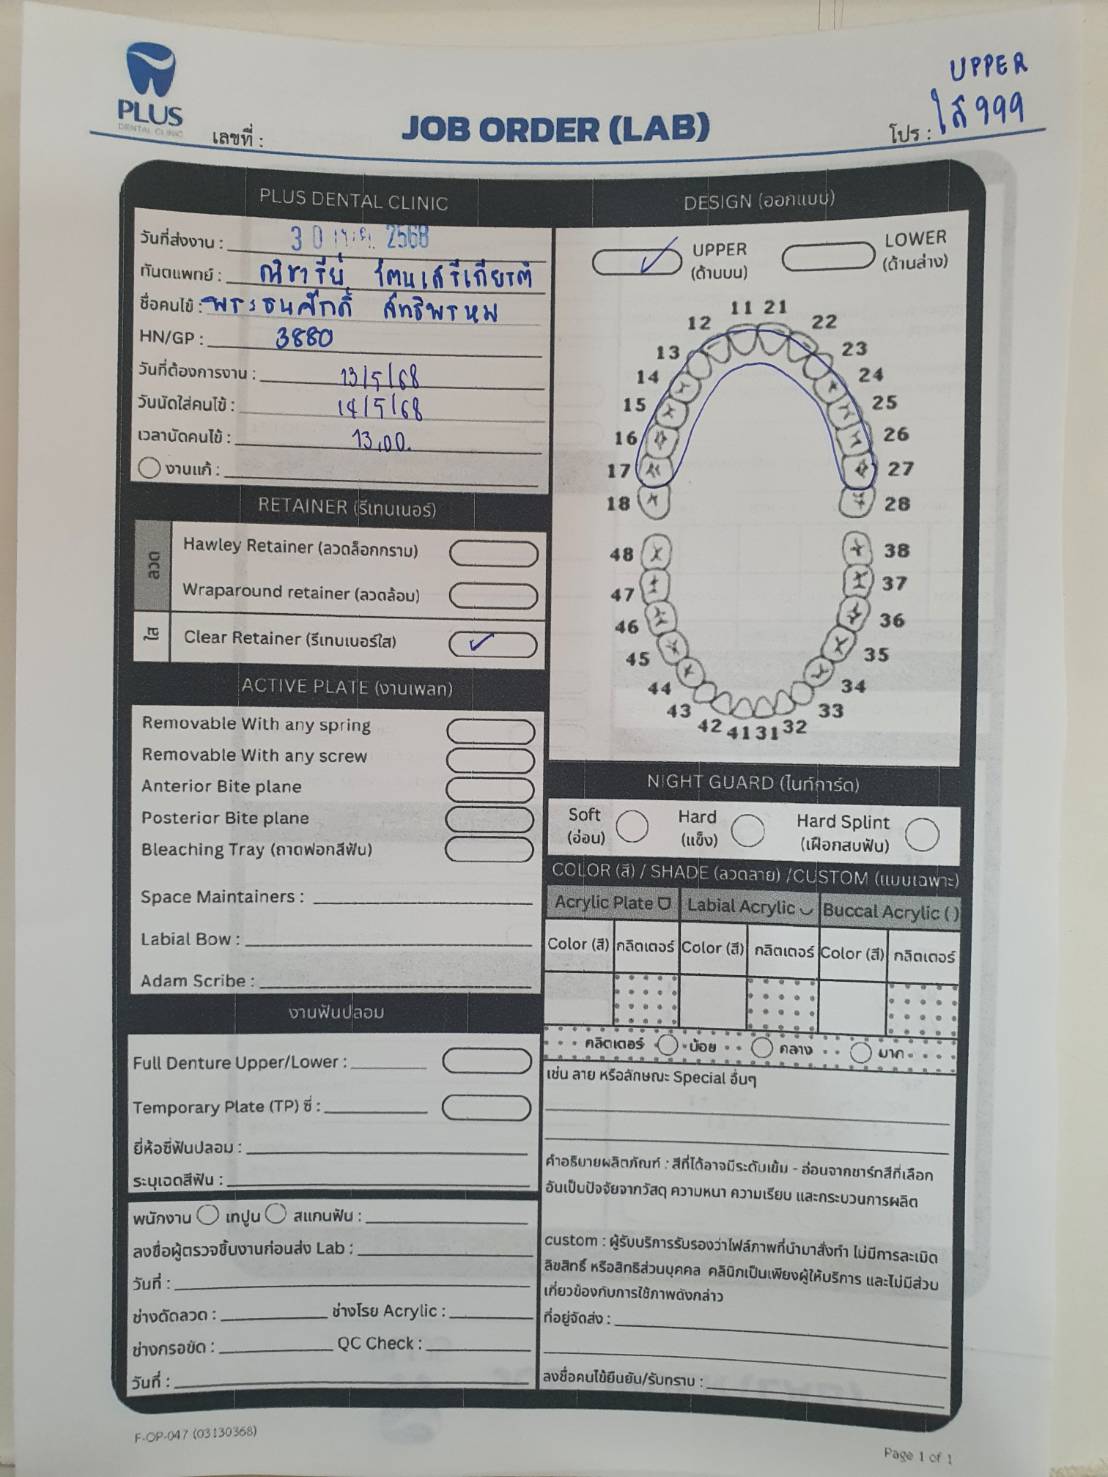 PLUS
DENTAL CLINIC
เลขที่ :
JOB ORDER (LAB)
UPPER
โปร : ใส 999
PLUS DENTAL CLINIC
วันที่ส่งงาน : 30 เม.ย. 2568
ทันตแพทย์ :
ชื่อคนไข้ : พระธนศักดิ์ สิทธิพรหม
HN/GP : 3880
วันที่ต้องการงาน : 13/5/68
วันนัดใส่คนไข้ : 14/5/68
เวลานัดคนไข้ : 13.00.
งานแก้ :
RETAINER (รีเทนเนอร์)
ลวด
Hawley Retainer (ลวดล็อกกราม)
Wraparound retainer (ลวดล้อม)
ใส
Clear Retainer (รีเทนเนอร์ใส)
ACTIVE PLATE (งานเพลท)
Removable With any spring
Removable With any screw
Anterior Bite plane
Posterior Bite plane
Bleaching Tray (ถาดฟอกสีฟัน)
Space Maintainers :
Labial Bow :
Adam Scribe :
งานฟันปลอม
Full Denture Upper/Lower :
Temporary Plate (TP) ซี่ :
ยี่ห้อซี่ฟันปลอม :
ระบุเฉดสีฟัน :
พนักงาน เทปูน สแกนฟัน :
ลงชื่อผู้ตรวจชิ้นงานก่อนส่ง Lab :
วันที่ :
ช่างดัดลวด : ช่างโรย Acrylic :
ช่างกรอขัด : QC Check :
วันที่ :
DESIGN (ออกแบบ)
UPPER
(ด้านบน)
LOWER
(ด้านล่าง)
11 21
12 22
13 23
14 24
15 25
16 26
17 27
18 28
48 38
47 37
46 36
45 35
44 34
43 33
42 41 31 32
NIGHT GUARD (ไนท์การ์ด)
Soft
(อ่อน)
Hard
(แข็ง)
Hard Splint
(เฝือกสบฟัน)
COLOR (สี) / SHADE (ลวดลาย) /CUSTOM (แบบเฉพาะ)
Acrylic Plate Labial Acrylic Buccal Acrylic ( )
Color (สี) กลิตเตอร์ Color (สี) กลิตเตอร์ Color (สี) กลิตเตอร์
กลิตเตอร์ น้อย กลาง มาก
เช่น ลาย หรือลักษณะ Special อื่นๆ
คำอธิบายผลิตภัณฑ์ : สีที่ได้อาจมีระดับเข้ม - อ่อนจากชาร์ทสีที่เลือก
อันเป็นปัจจัยจากวัสดุ ความหนา ความเรียบ และกระบวนการผลิต
custom : ผู้รับบริการรับรองว่าไฟล์ภาพที่นำมาสั่งทำ ไม่มีการละเมิด
ลิขสิทธิ์ หรือสิทธิส่วนบุคคล คลินิกเป็นเพียงผู้ให้บริการ และไม่มีส่วน
เกี่ยวข้องกับการใช้ภาพดังกล่าว
ที่อยู่จัดส่ง :
ลงชื่อคนไข้ยืนยัน/รับทราบ :
F-OP-047 (03130368)
Page 1 of 1